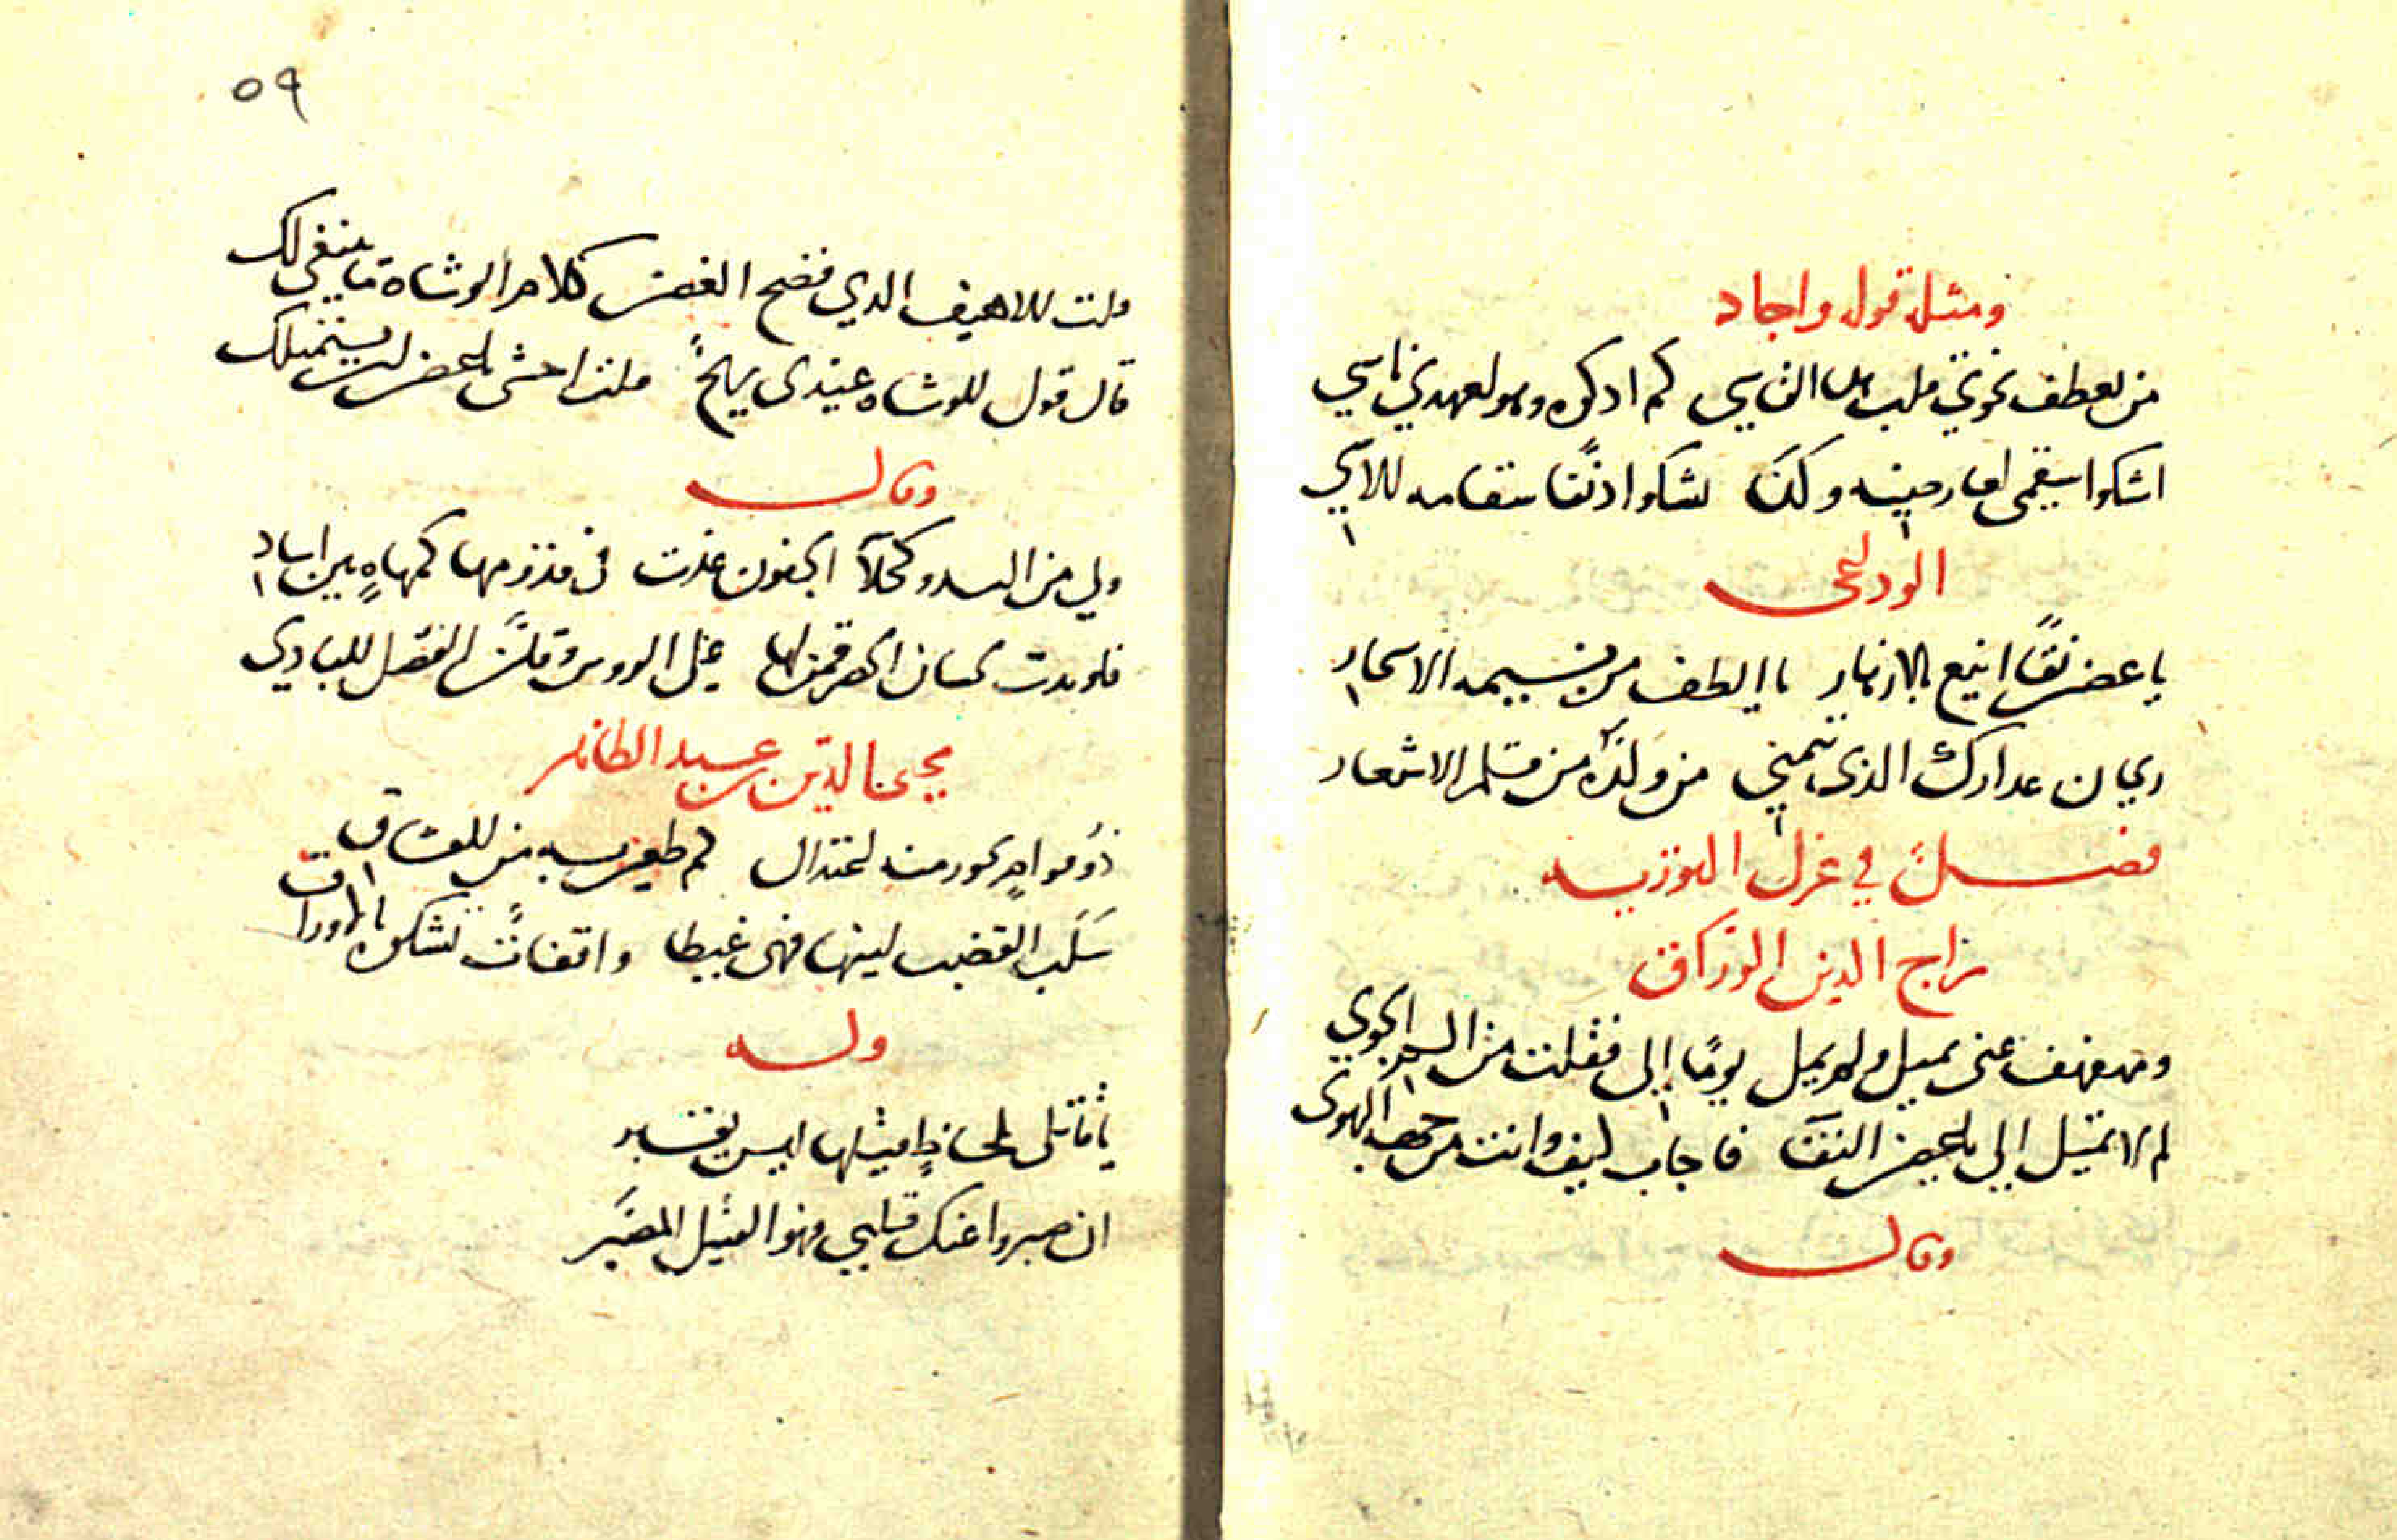 ومثله قوله واجاد
من لعطف نحوي قلبك القاسي كم اذكره وهو لعهدي ناسي
اشكوا سقمي لعارضيه وكذا لشكوا دنفا سقامه للآسي
الوداعي
يا غصن نقا اينع بالازهار يا الطف من نسيمه الاسحار
ريحان عدارك الذي تيمني من ولده من قلم الاشعار
فصل في غزل اللوزيه
سراج الدين الوراق
ومهفهف عني يميل ولم يمل يوما الي فقلت من الم الجوي
لم لا تميل الي يا غصن النقا فاجاب كيف وانت من جهة الهوى
وقال
٥٩
قلت للاهيف الذي فضح الغصن كلام الوشاة ما ينبغي لك
قال قول الوشاه عندي ريح قلت اخشى يا غصن ان يستميلك
وقال
ولي من البدو كحلا الجفون غدت في قومها كمهاة بين اساد
فلو بدت لحسان الحضر قمن لها على الروس وقلن الفضل للبادي
محي الدين بن عبد الظاهر
ذو قوام يجور منه اعتدال كم طعين به من للعشاق
سلب القضب لينها فهي غيظا واقفات تشكوه بالاوراق
وله
يا قاتلي بلحاظ قتيلها ليس يقبر
ان صبروا عنك قلبي فهو القتيل المصبر